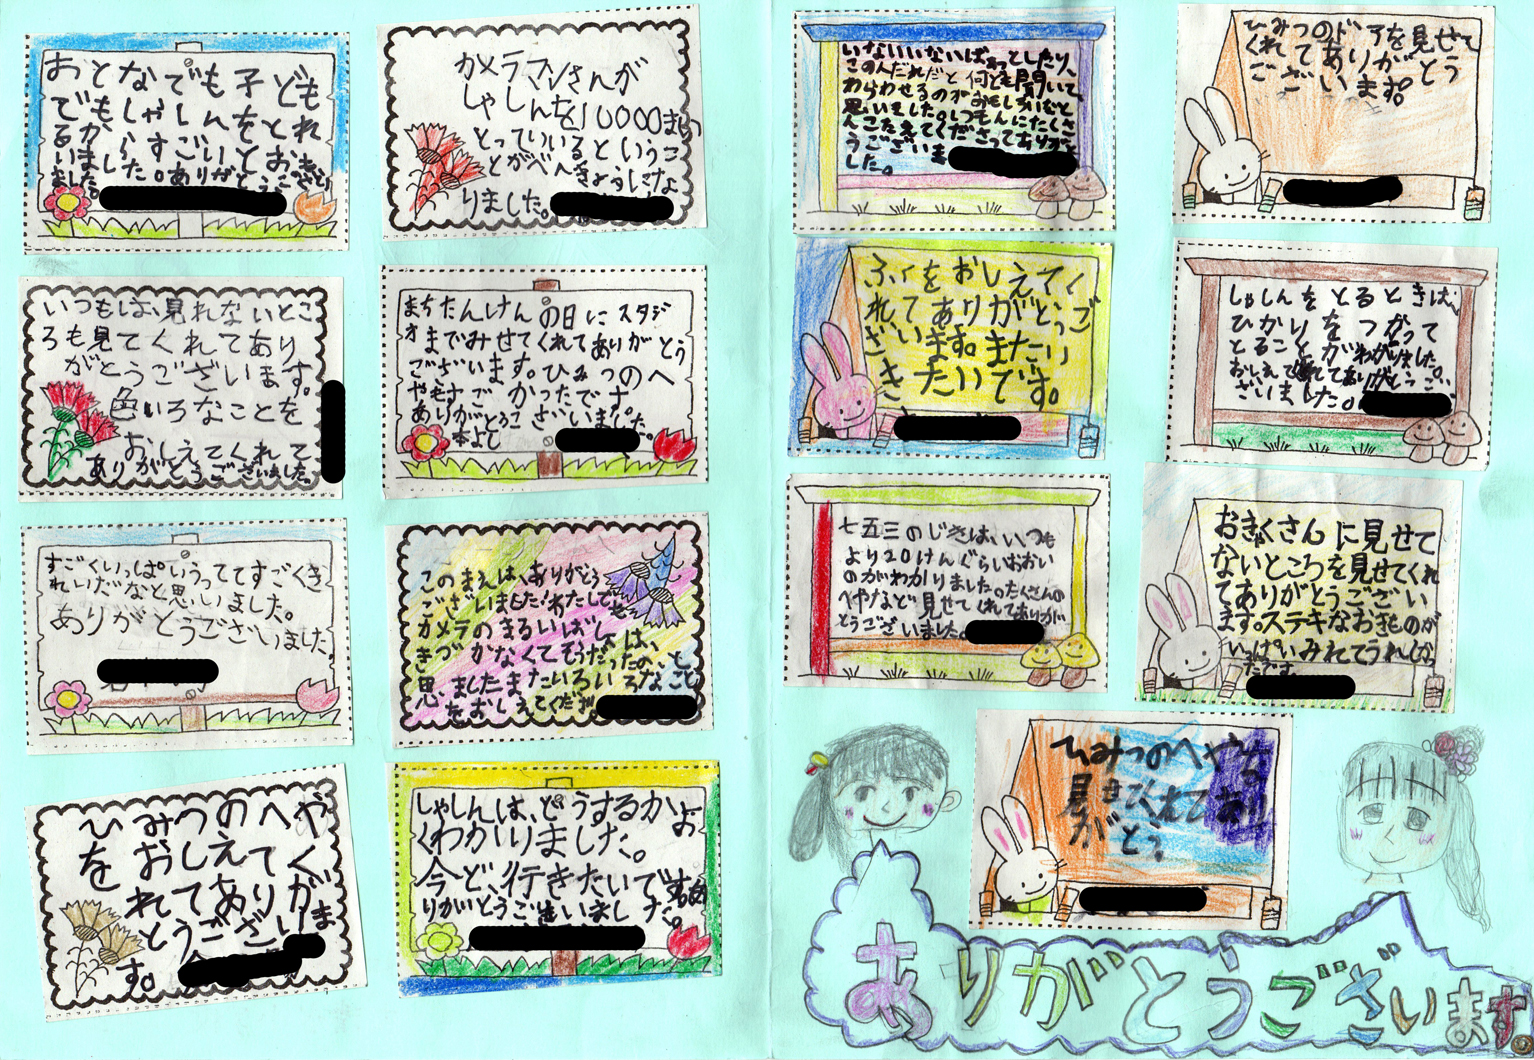 おとなでも子ども
でもしゃしんをとれ
るからすごいとおも
いました。ありがとうござい
ました。
カメラマンさんが
しゃしんを10000まい
とっているというこ
とがべんきょうにな
りました。
いつもは見れないとこ
ろも見てくれてあり
がとうございます。
色いろなことを
おしえてくれて
ありがとうございました。
まちたんけんの日にスタジ
オまでみせてくれてありがとう
ございます。ひみつのへ
やもすごかったです。
ありがとうございました。
すごくいっぱいうっててすごくき
れいだなと思いました。
ありがとうございました
このまえは、ありがとう
ございました。わたしは
カメラのまるいぱしょは、
きづかなくてそうだったの、と
思ましたまたいろいろなこと
をおしえてくださ
ひみつのへや
をおしえてく
れてありが
とうござい
ま
す。
しゃしんは、どうするかよ
くわかりました。
今ど、行きたいです。あ
りがとうございました。
いないいないばぁっとしたり、
この人だれだと何ども聞いて、
わらわせるのがおもしろいなと
思いました。しつもんにたくさ
んこたえてくださってありがと
うございま
した。
ふくをおしえてく
れてありがとうご
ざいます。またい
きたいです。
七五三のじきは、いつも
より20けんぐらいおおい
のがわかりました。たくさんの
へやなど見せてくれてありが
とうございました。
ひみつのドアを見せて
くれてありがとう
ございます。
しゃしんをとるときは、
ひかりをつかって
とることがわかりました。
おしえてくれてありがとうご
ざいました。
おきゃくさんに見せて
ないところを見せてくれ
てありがとうござい
ます。ステキなおきものが
いっぱいみれてうれしかっ
たです。
ひみつのへやを
見せてくれてあり
がとう。
ありがとうございます。